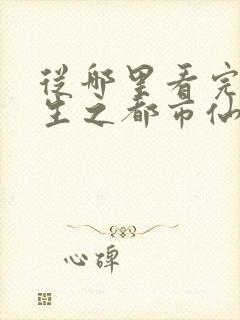 从哪里看完
生之都市仙
心碑